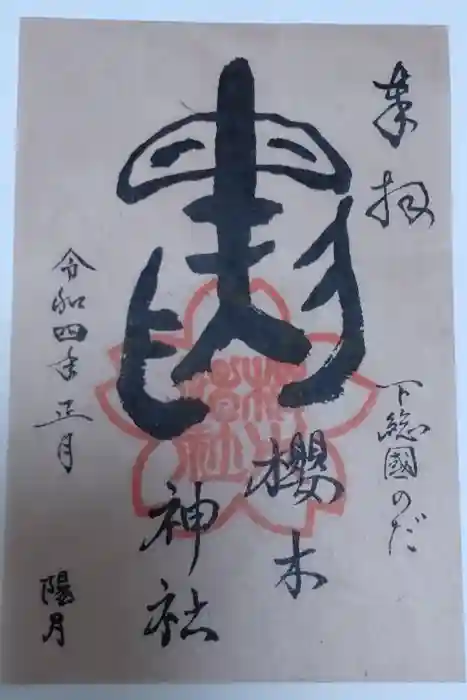 奉拝
下総國のだ
櫻木
神社
令和四年正月
陽月